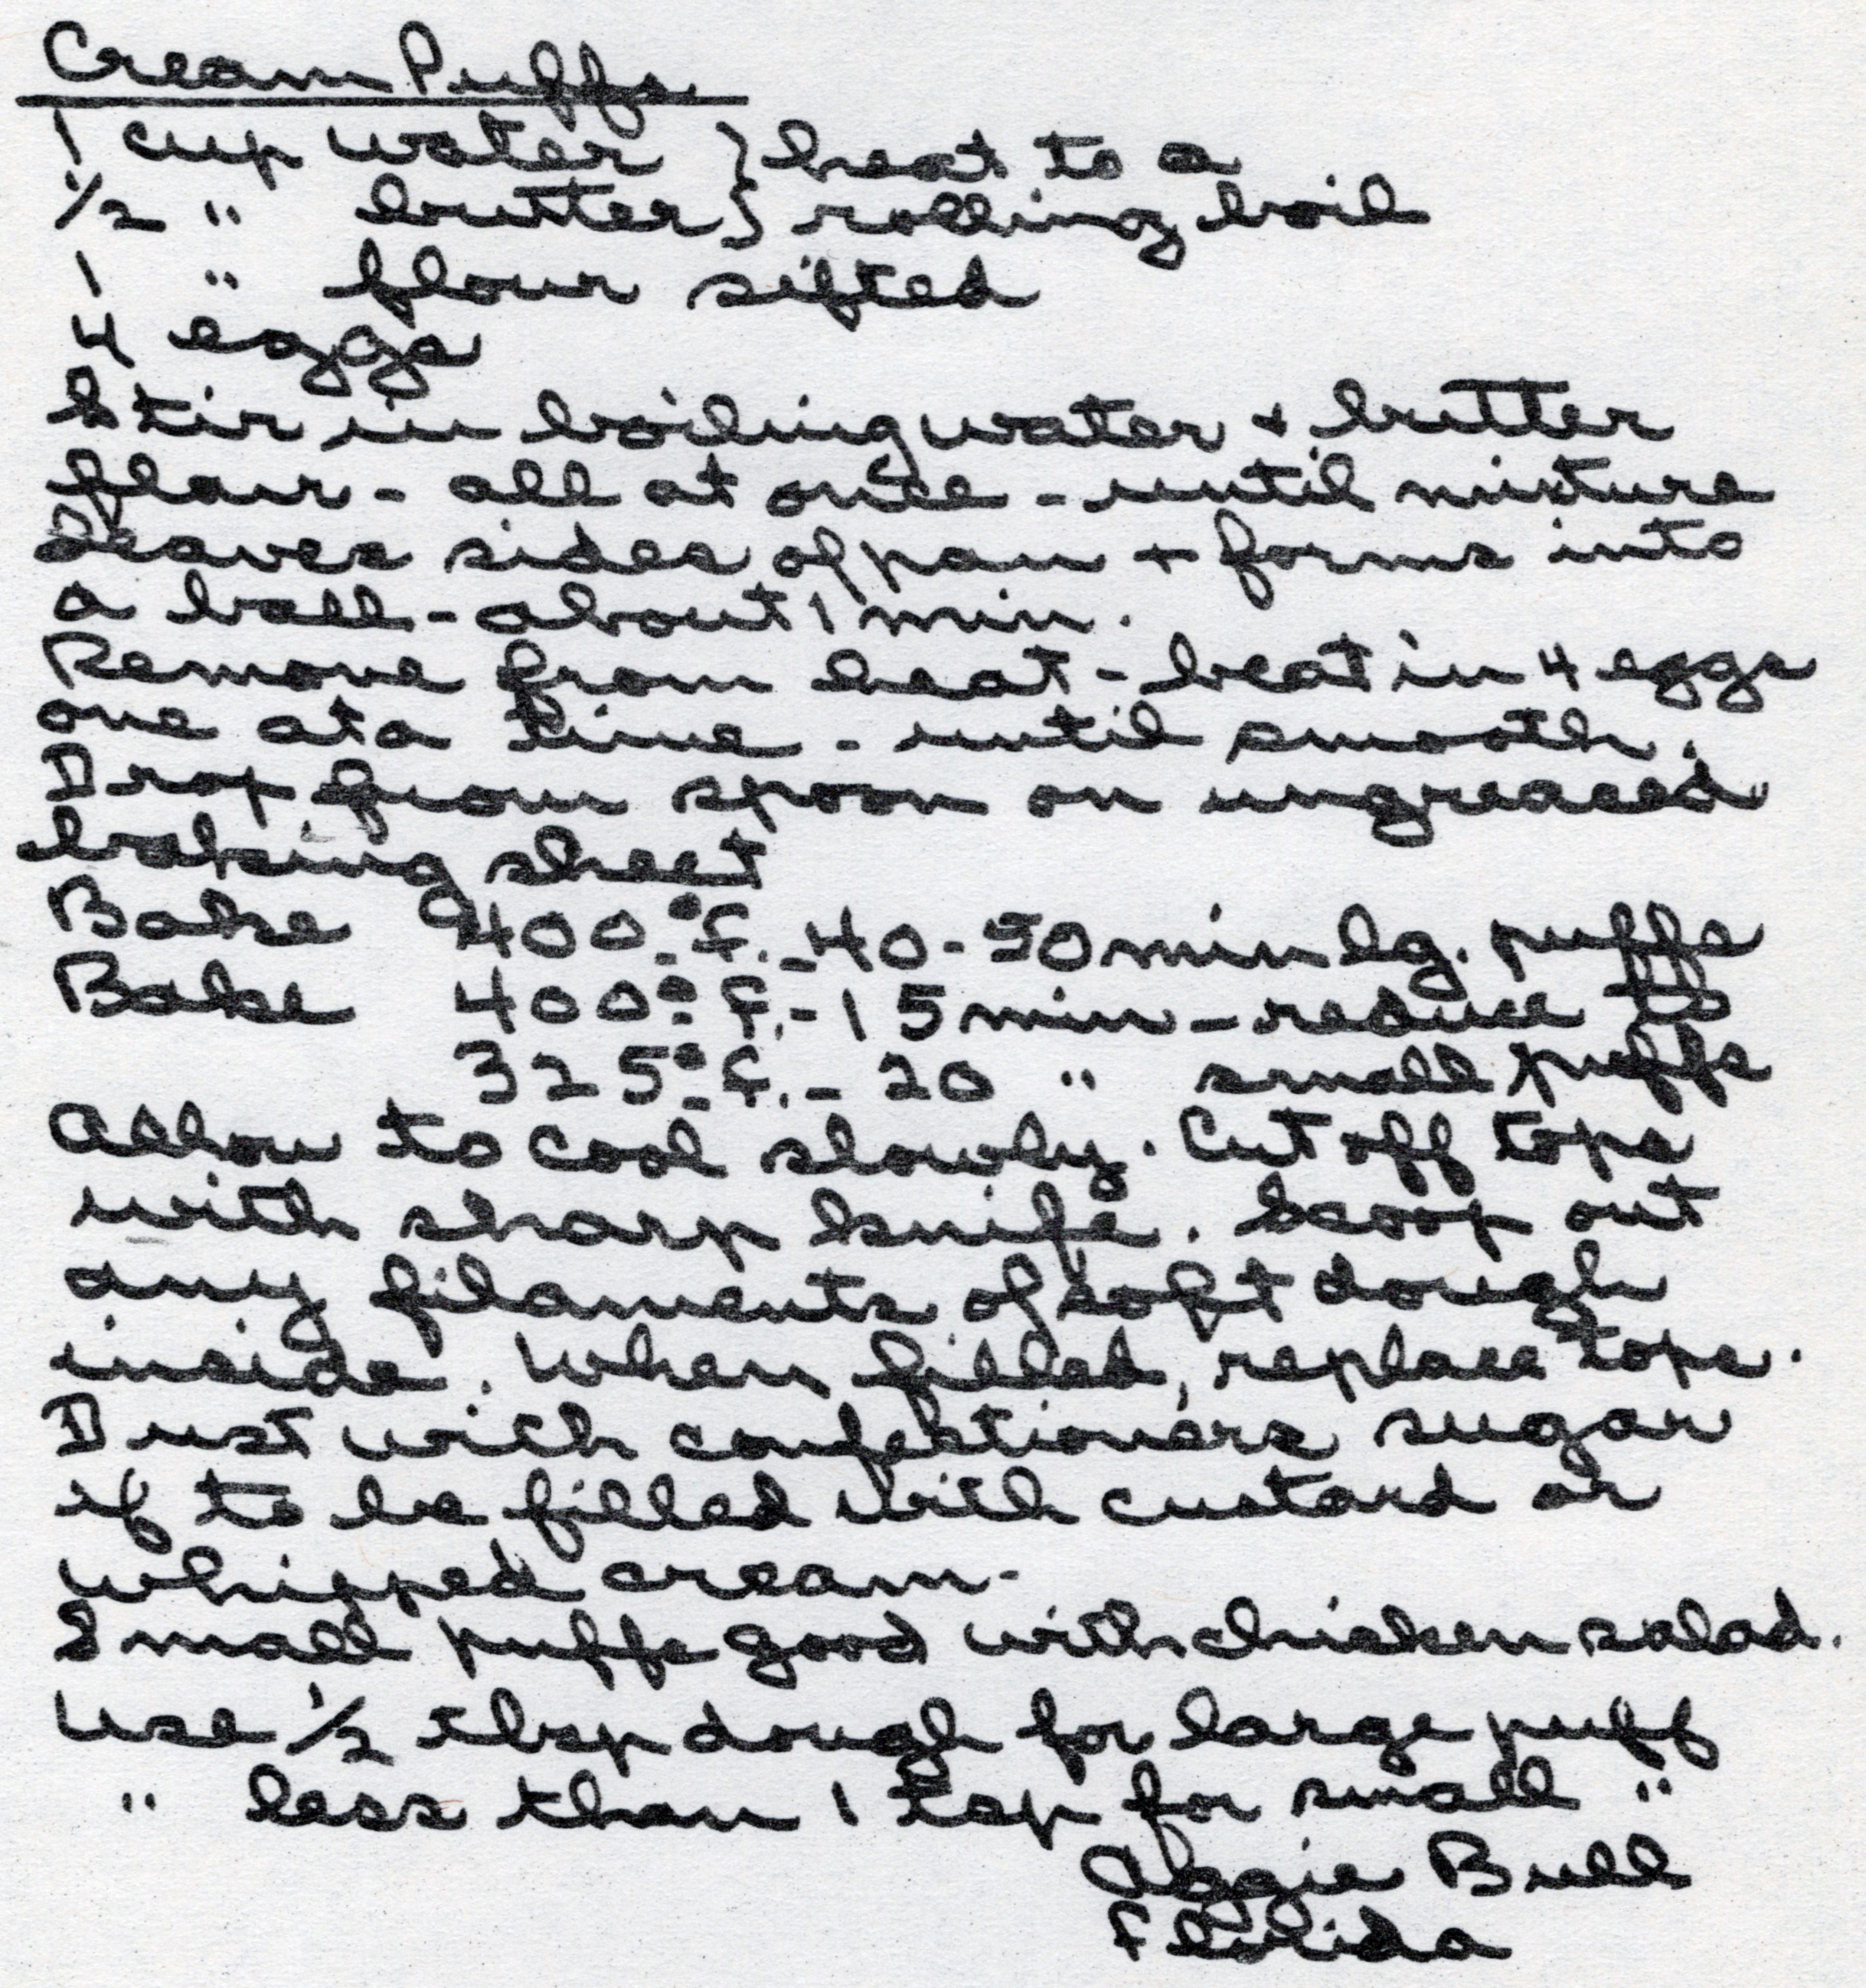 Cream Puffs
1 cup water } heat to a
1/2 " butter } rolling boil
1 " flour sifted
4 eggs
Stir in boiling water + butter
flour - all at once - until mixture
leaves sides of pan + forms into
a ball - about 1 min.
Remove from heat - beat in 4 eggs
one at a time - until smooth.
Drop from spoon on ungreased
baking sheet
Bake 400° f. - 40-50 min lg. puffs
Bake 400° f. - 15 min - reduce to
325° f. - 20 " small puffs
Allow to cool slowly. Cut off tops
with sharp knife. Scoop out
any filaments of soft dough
inside. When filled, replace tops.
Dust with confektioners sugar
if to be filled with custard or
whipped cream-
Small puffs good with chicken salad.
Use 1/2 tbsp dough for large puff
" less than 1 tsp for small "
Aggie Bull
Florida